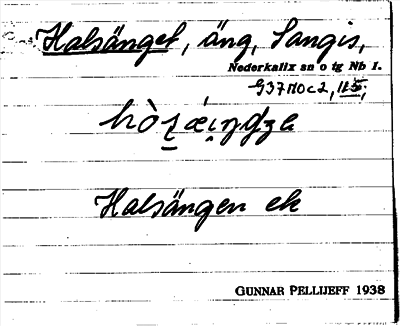 Halsänget, äng, Sangis,
Nederkalix sn o tg Nb l.
937NOc2, 115;
Halsängen ek
GUNNAR PELLIJEFF 1938